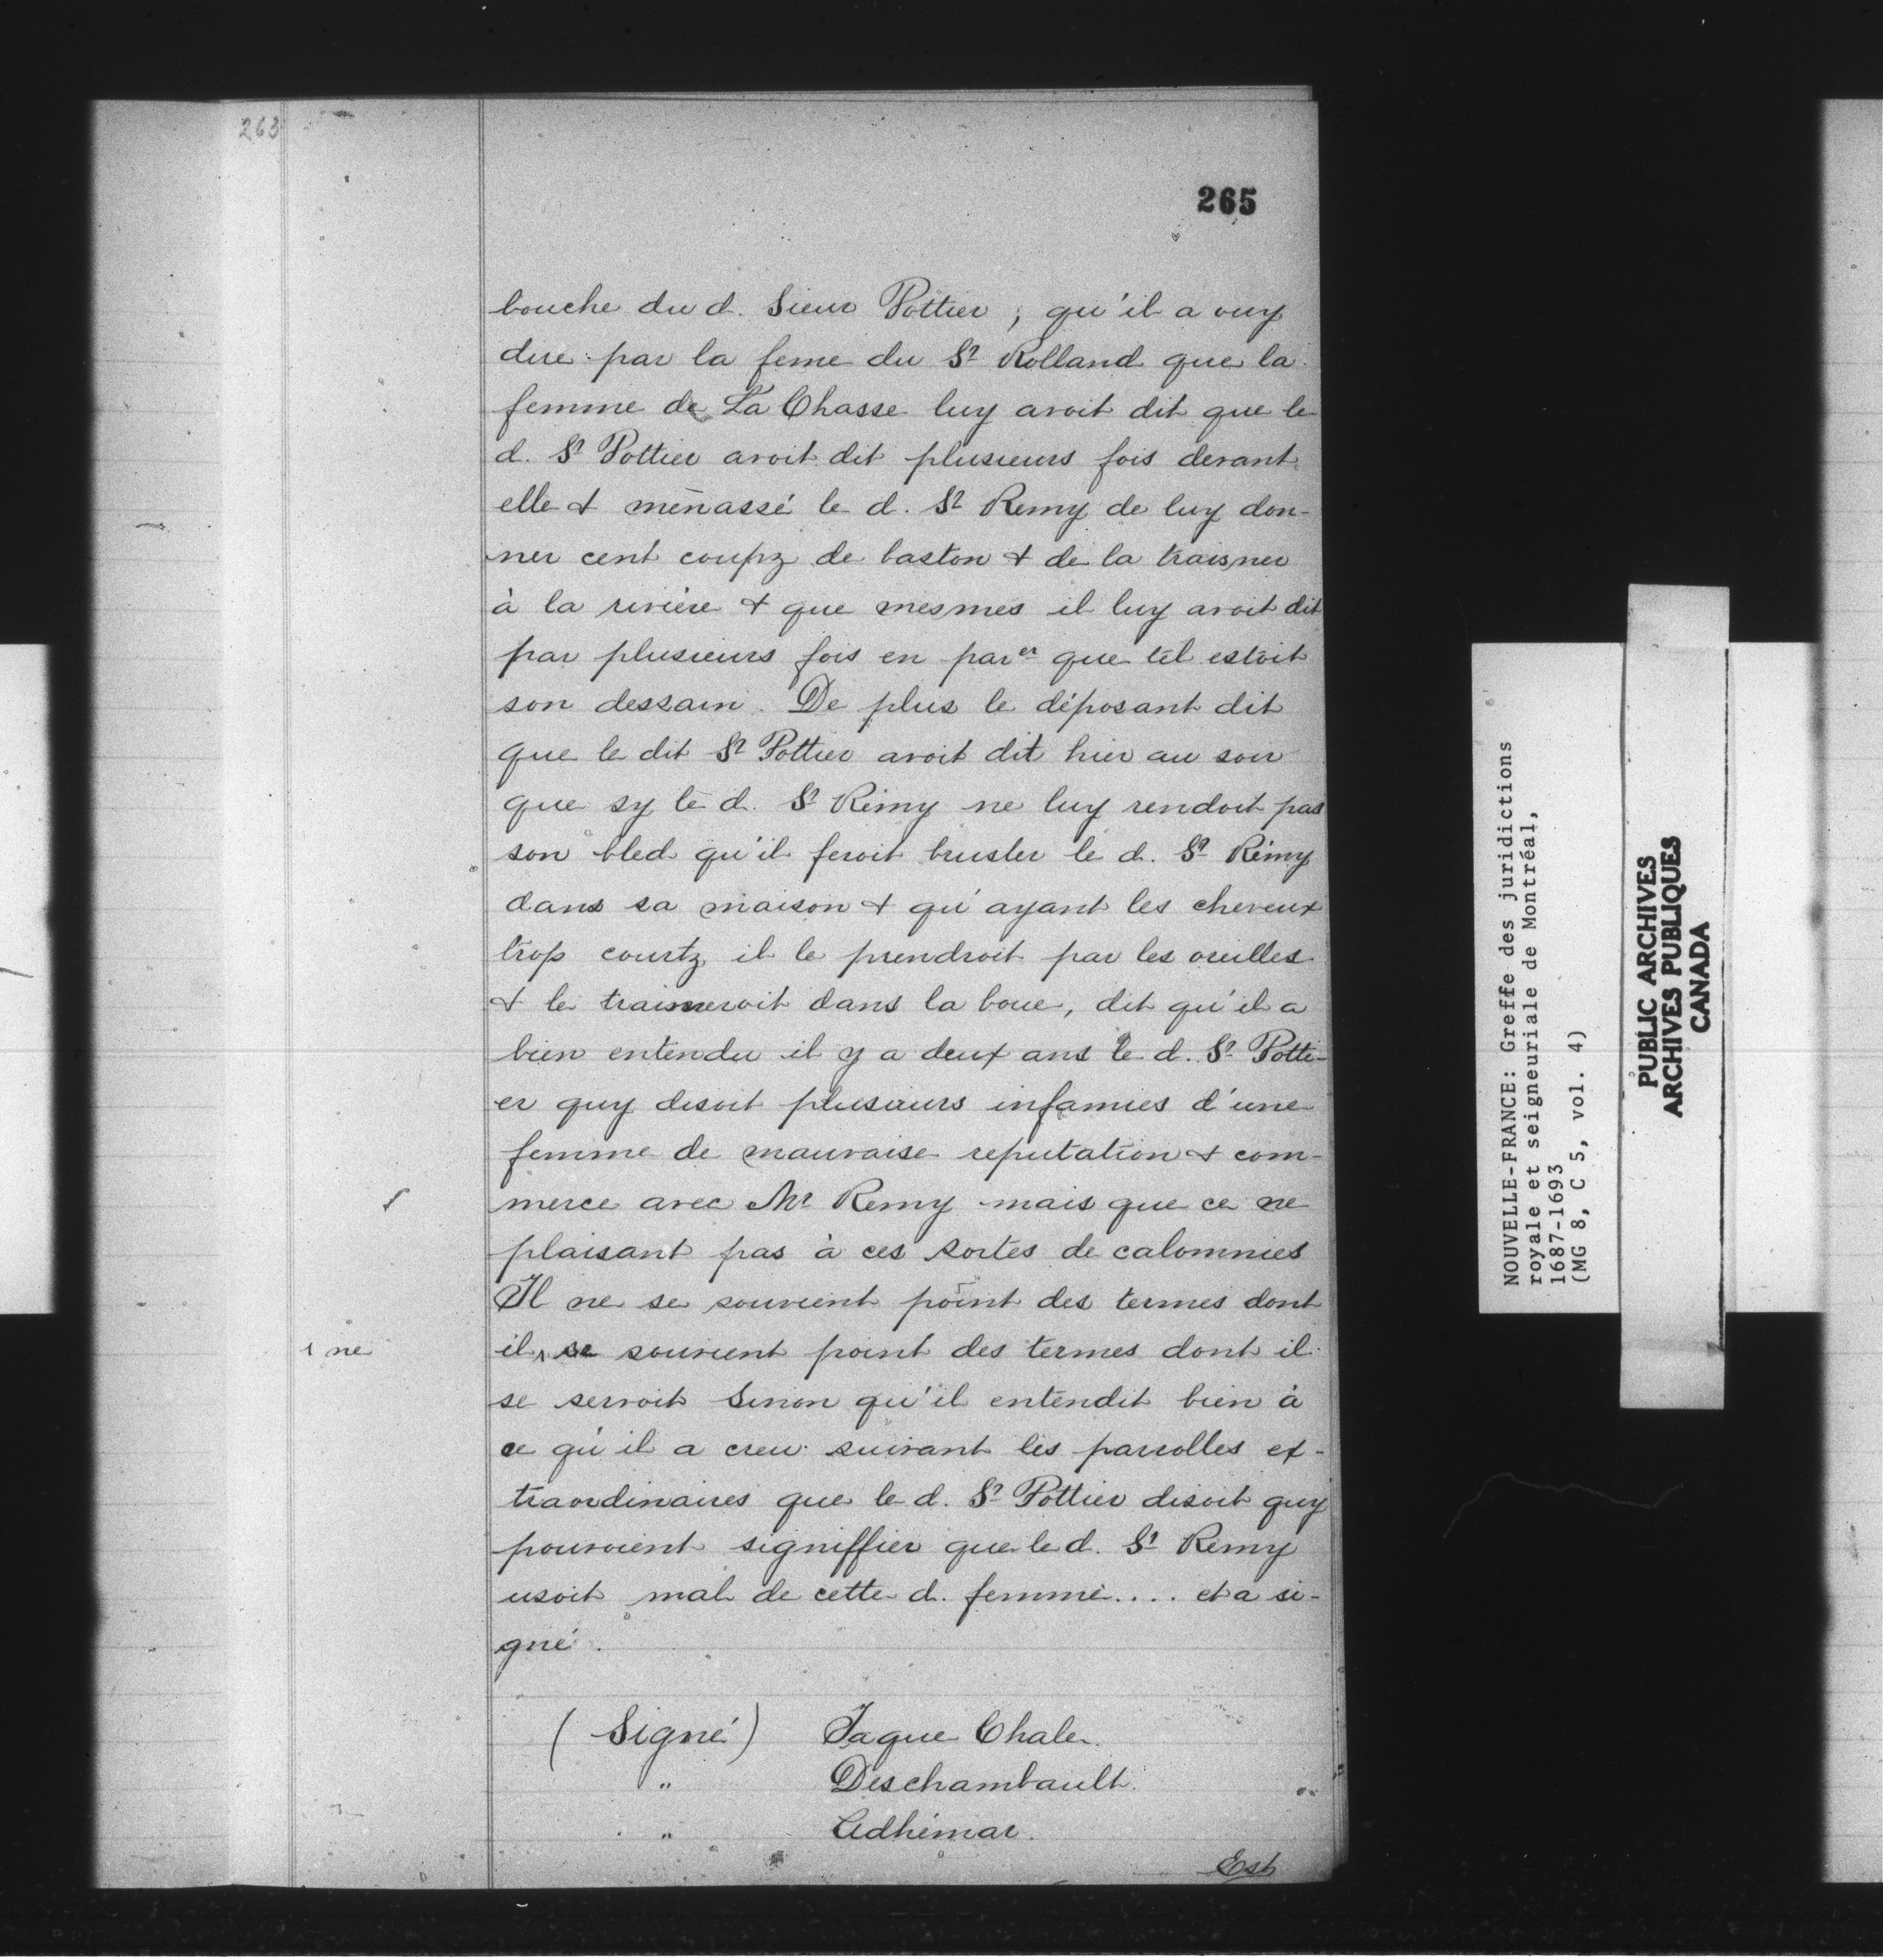 263
265
bouche du d. Sieur Pottier, qu'il a ouy
dire par la feme du Sr Rolland que la
femme de La Chasse luy avoit dit que le
d. Sr Pottier avoit dit plusieurs fois devant
elle & ménassé le d. Sr Remy de luy don-
ner cent coupz de baston & de la traisner
à la rivière & que mesmes il luy avoit dit
par plusieurs fois en parer que tel estoit
son dessain. De plus le déposant dit
que le dit Sr Pottier avoit dit hier au soir
que sy le d. Sr Rémy ne luy rendoit pas
son bled qu'il feroit brusler le d. Sr Rémy
dans sa maison & qu'ayant les cheveux
trop courtz il le prendroit par les oreilles
& le traisneroit dans la boue, dit qu'il a
bien entendu il y a deux ans le d. Sr Potti-
er quy disoit plusieurs infamies d'une
femme de mauvaise reputation & com-
merce avec Mr Remy mais que ce ne
plaisant pas à ces sortes de calomnies
Il ne se souvient point des termes dont
ne
il se souvient point des termes dont il
se servoit Sinon qu'il entendit bien à
ce qu'il a creu suivant les parrolles ex-
traordinaires que le d. Sr Pottier disoit quy
pouvoient signiffier que le d. Sr Remy
usoit mal de cette d. femme.... et a si-
gné.
(Signé) Jaque Chale
" Deschambault
" Adhémar.
Est
NOUVELLE-FRANCE: Greffe des juridictions
royale et seigneuriale de Montréal,
1687-1693
(MG 8, C 5, vol. 4)
PUBLIC ARCHIVES
ARCHIVES PUBLIQUES
CANADA